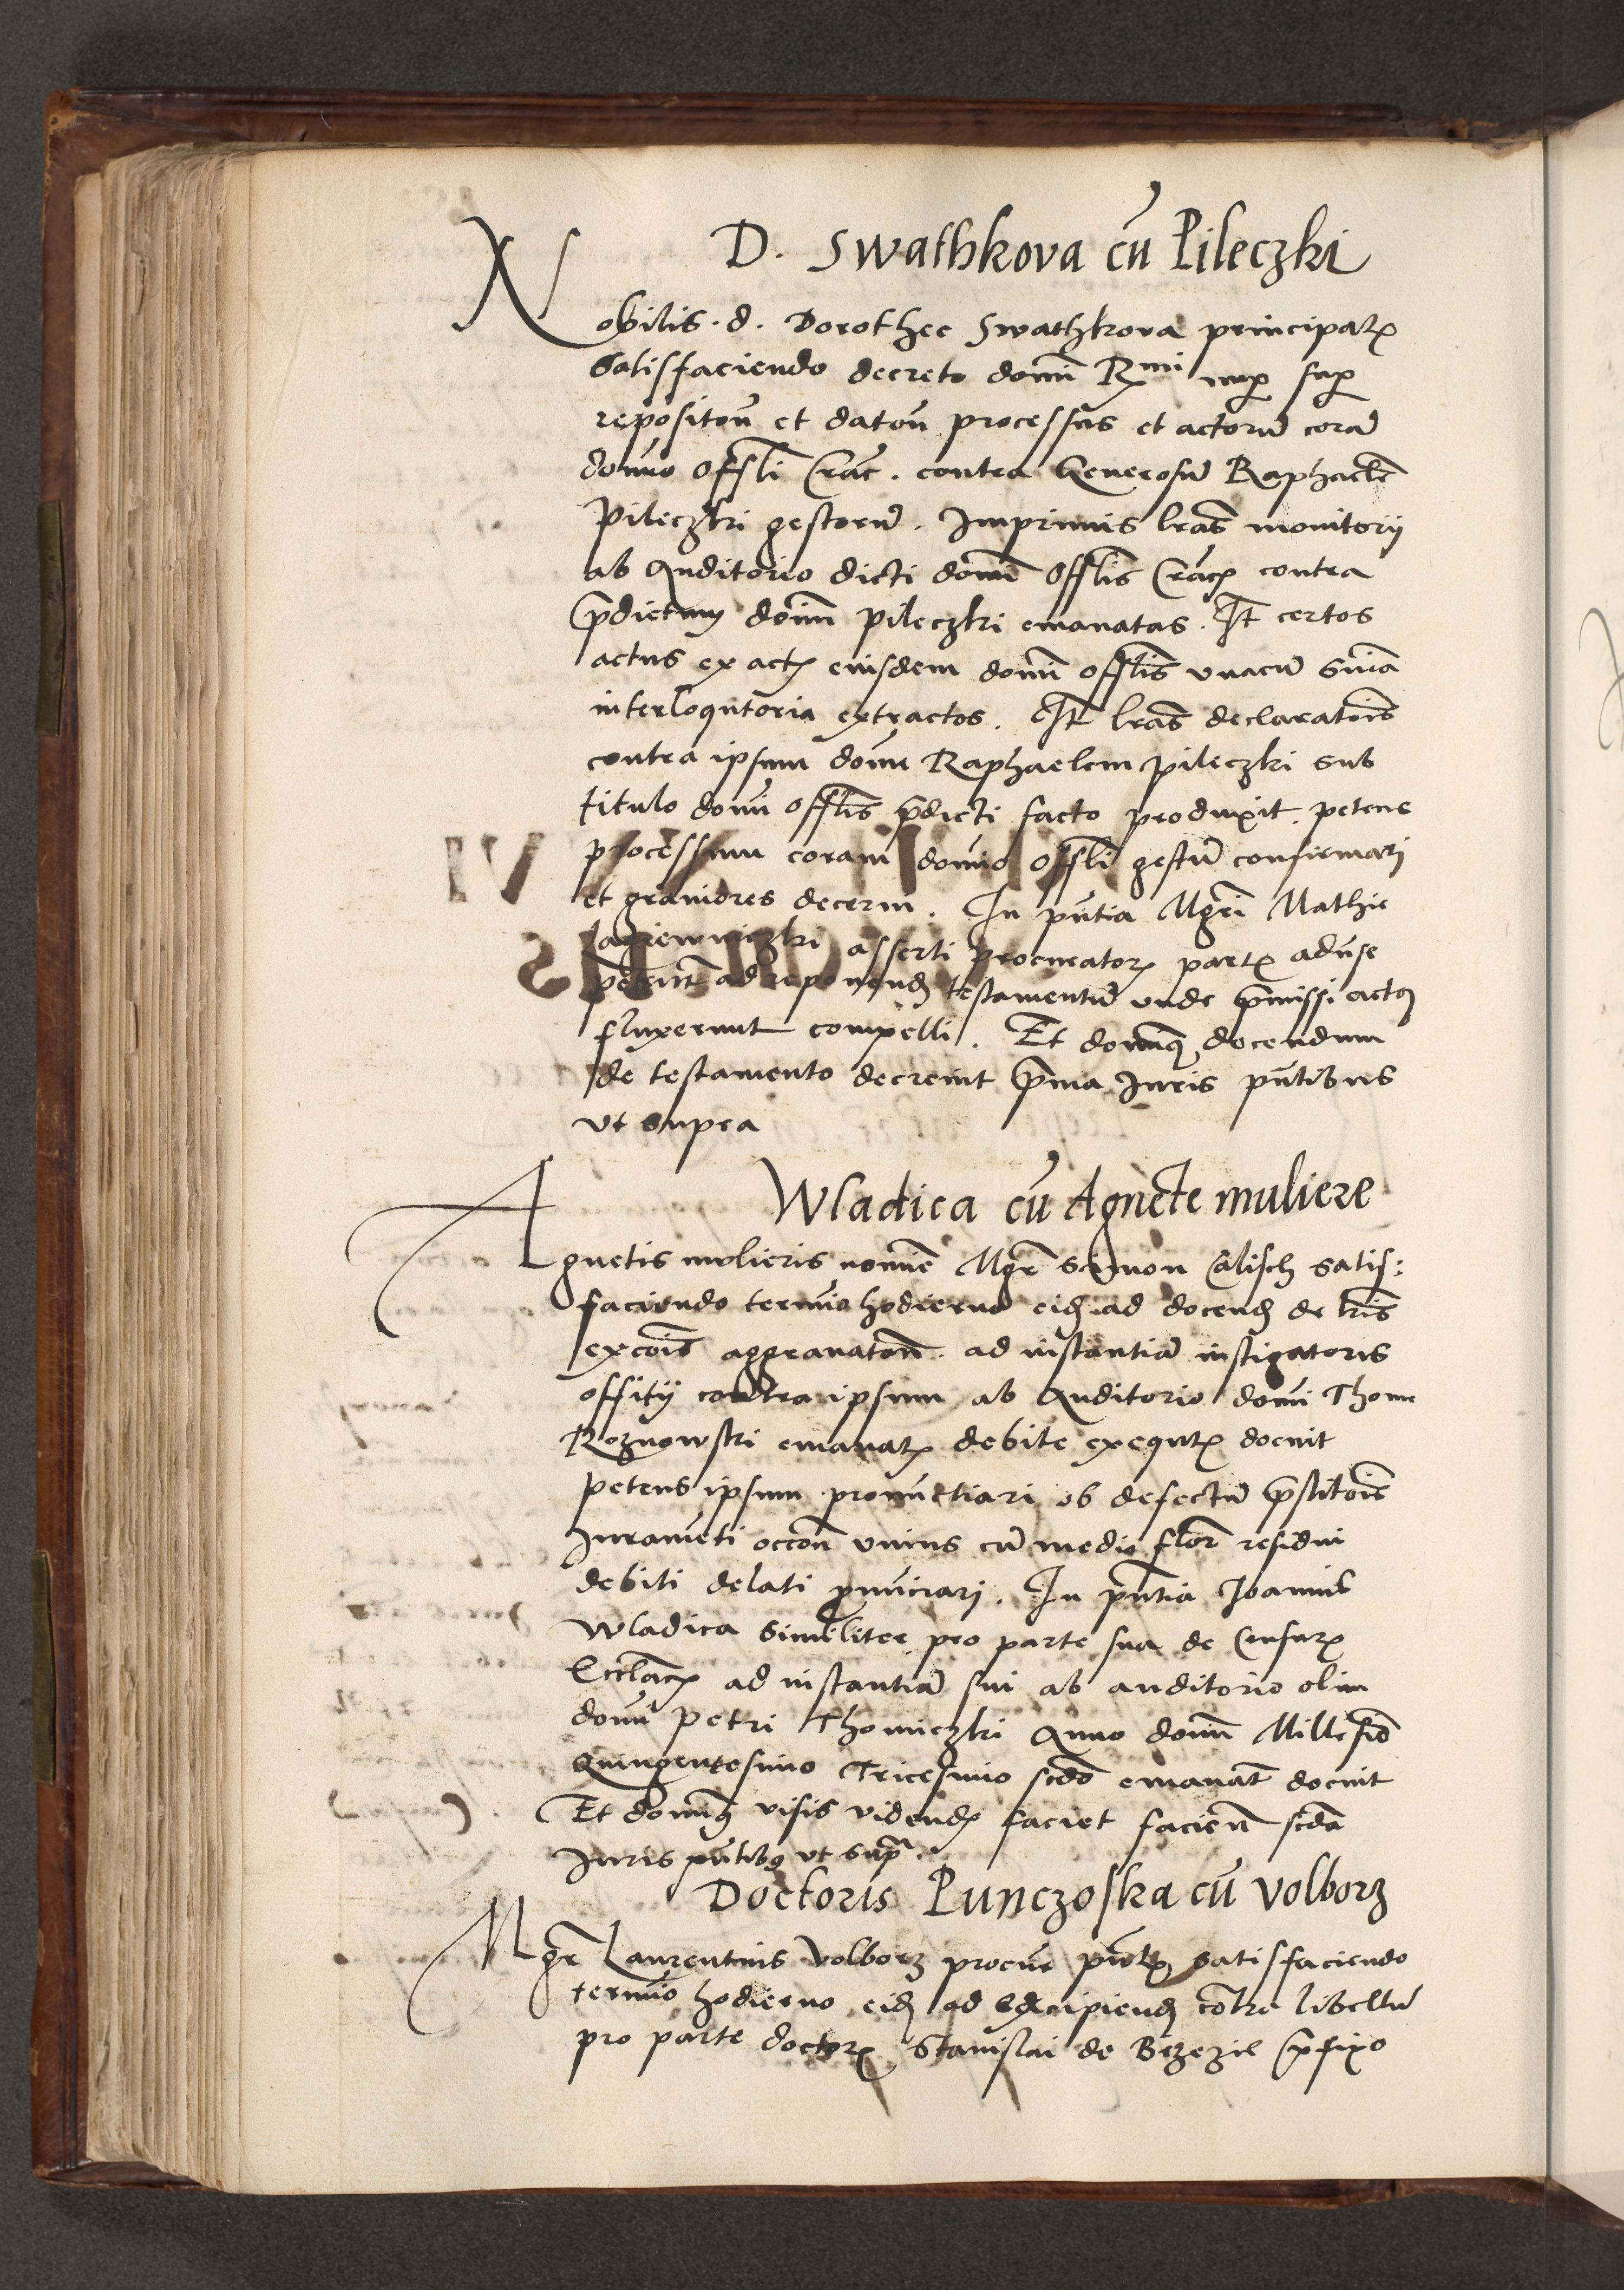 D. Swathkova cū Pileczki
Nobilis. d. Dorothee Swathkova principal
Satisfaciendo decreto domī Rmi nup sup
repositōn et datōn processus et actorū corā
domīo offli Crac. contra Generosū Raphaelē
Pileczki gestorū. Imprimis lras monitorij
ab Auditorio dicti domī offlis Crac contra
pdictum domī Pileczki emanatas. It certos
actus ex act eiusdem domī offlis vnacū snia
interloqutoria extractos. It lras declaratōis
contra ipsum domī Raphaelem Pileczki sub
titulo domī offlis pdicti facto produxit. petens
processum coram domīo offli gestū confirmari
et graviores decerni. In pntia Mgri Mathie
Lagiewniczki asserti procurator part aduse
petent ad reponend testamentū unde pmissi actus
fluxerunt compelli. Et domīus docendum
de testamento decreuit pma Iuris pntibus
vt supra
Wladica cū Agnete muliere
Agnetis mulieris nomīe Mgr Simon Calisch satis:
faciendo termīo hodierno eid ad docend de lris
excōis aggrauatōn. ad instantiā instigatoris
offitij contra ipsum ab Auditorio domī Thome
Roznowski emanat debite exequt docuit
petens ipsum pronūctiari ob defectū pstitōis
Iuramēti occōn vnius cū medio flor residui
debiti delati pnūciari. In pntia Ioannis
Wladica similiter pro parte sua de Censur
Ecclac ad instantiā sui ab auditorio olim
domī Petri Thomiczki Anno domī Millesio
Quingentesimo Tricesimo scdo emanat docuit
Et domīus visis videnđ faciet facien scda
Iuris pntibus vt supra.
Doctoris Punczoska cū Volborz
Mgr Laurentius Volborz procur pntx satisfaciendo
termīo hodierno eid ad excipiend cōtra libellū
pro parte doctor Stanislai de Brzezie pfixo